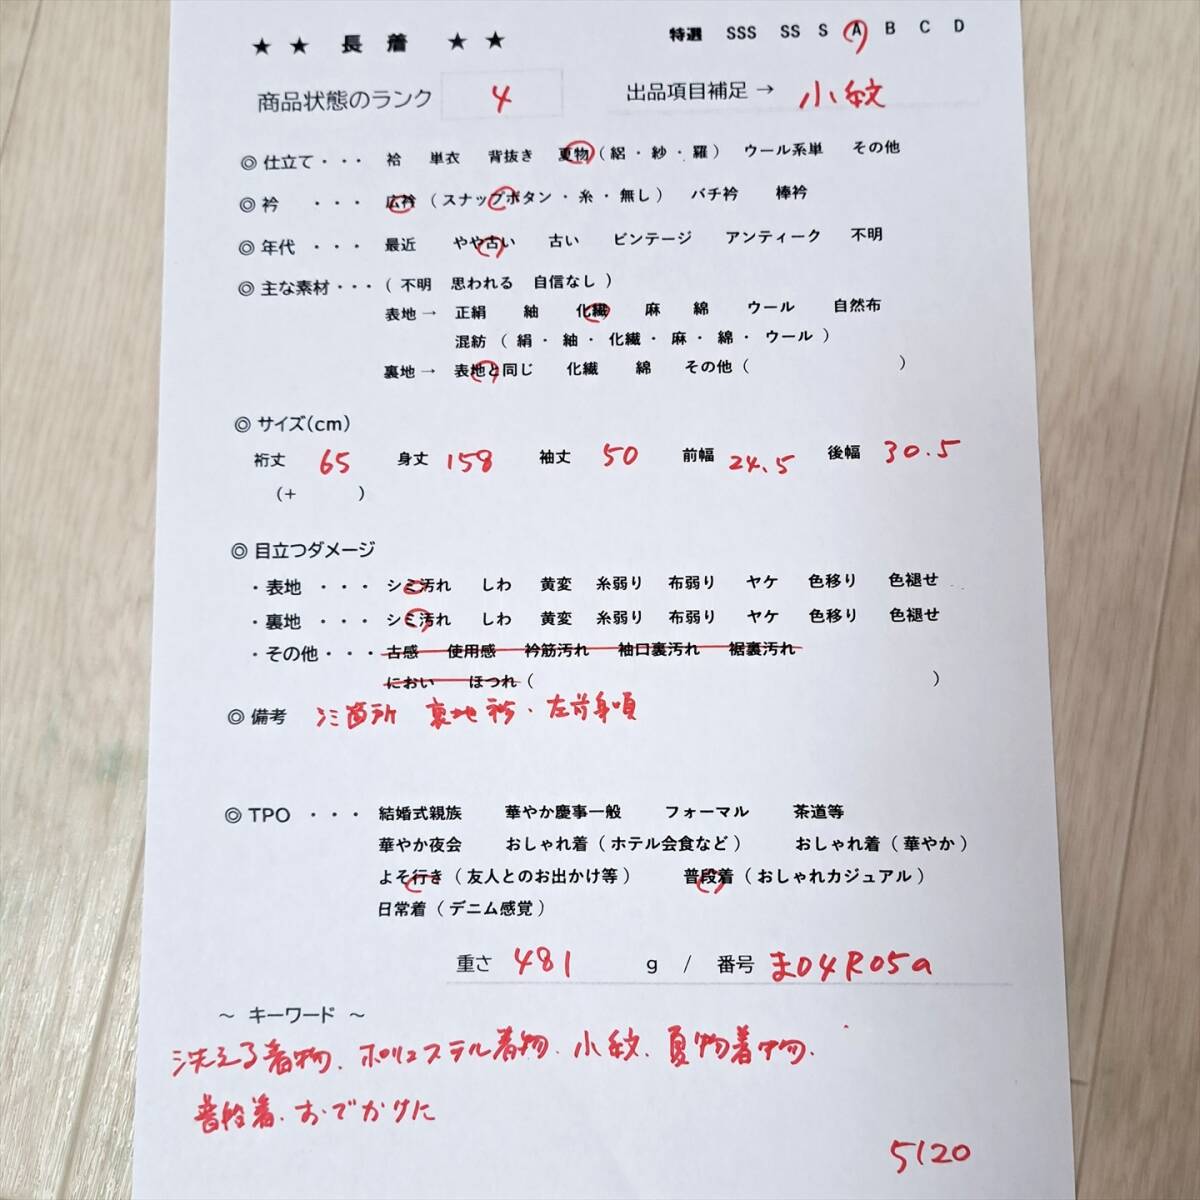 ★ ★ 長 着 ★ ★ 特選 SSS SS S A B C D
商品状態のランク 4 出品項目補足 → 小紋
◎ 仕立て・・・ 袷 単衣 背抜き 夏物(絽・紗・羅) ウール系単 その他
◎ 衿 ・・・ 広衿 (スナップボタン・糸・無し) バチ衿 棒衿
◎ 年代 ・・・ 最近 やや古い 古い ビンテージ アンティーク 不明
◎ 主な素材・・・( 不明 思われる 自信なし )
表地 → 正絹 紬 化繊 麻 綿 ウール 自然布
混紡 ( 絹・紬・化繊・麻・綿・ウール )
裏地 → 表地と同じ 化繊 綿 その他 ( )
◎ サイズ(cm)
裄丈 65 身丈 158 袖丈 50 前幅 24.5 後幅 30.5
(+ )
◎ 目立つダメージ
・表地 ・・・ シミ汚れ しわ 黄変 糸弱り 布弱り ヤケ 色移り 色褪せ
・裏地 ・・・ シミ汚れ しわ 黄変 糸弱り 布弱り ヤケ 色移り 色褪せ
・その他・・・ 古感 使用感 衿筋汚れ 袖口裏汚れ 裾裏汚れ
におい ほつれ ( )
◎ 備考 シミ箇所 裏地衿・左前身頃
◎ TPO ・・・ 結婚式親族 華やか慶事一般 フォーマル 茶道等
華やか夜会 おしゃれ着 (ホテル会食など) おしゃれ着 (華やか)
よそ行き (友人とのお出かけ等) 普段着 (おしゃれカジュアル)
日常着 (デニム感覚)
重さ 481 g / 番号 ま04R05a
～ キーワード ～
洗える着物、ポリエステル着物、小紋、夏物着物、
普段着、おでかけに
5120